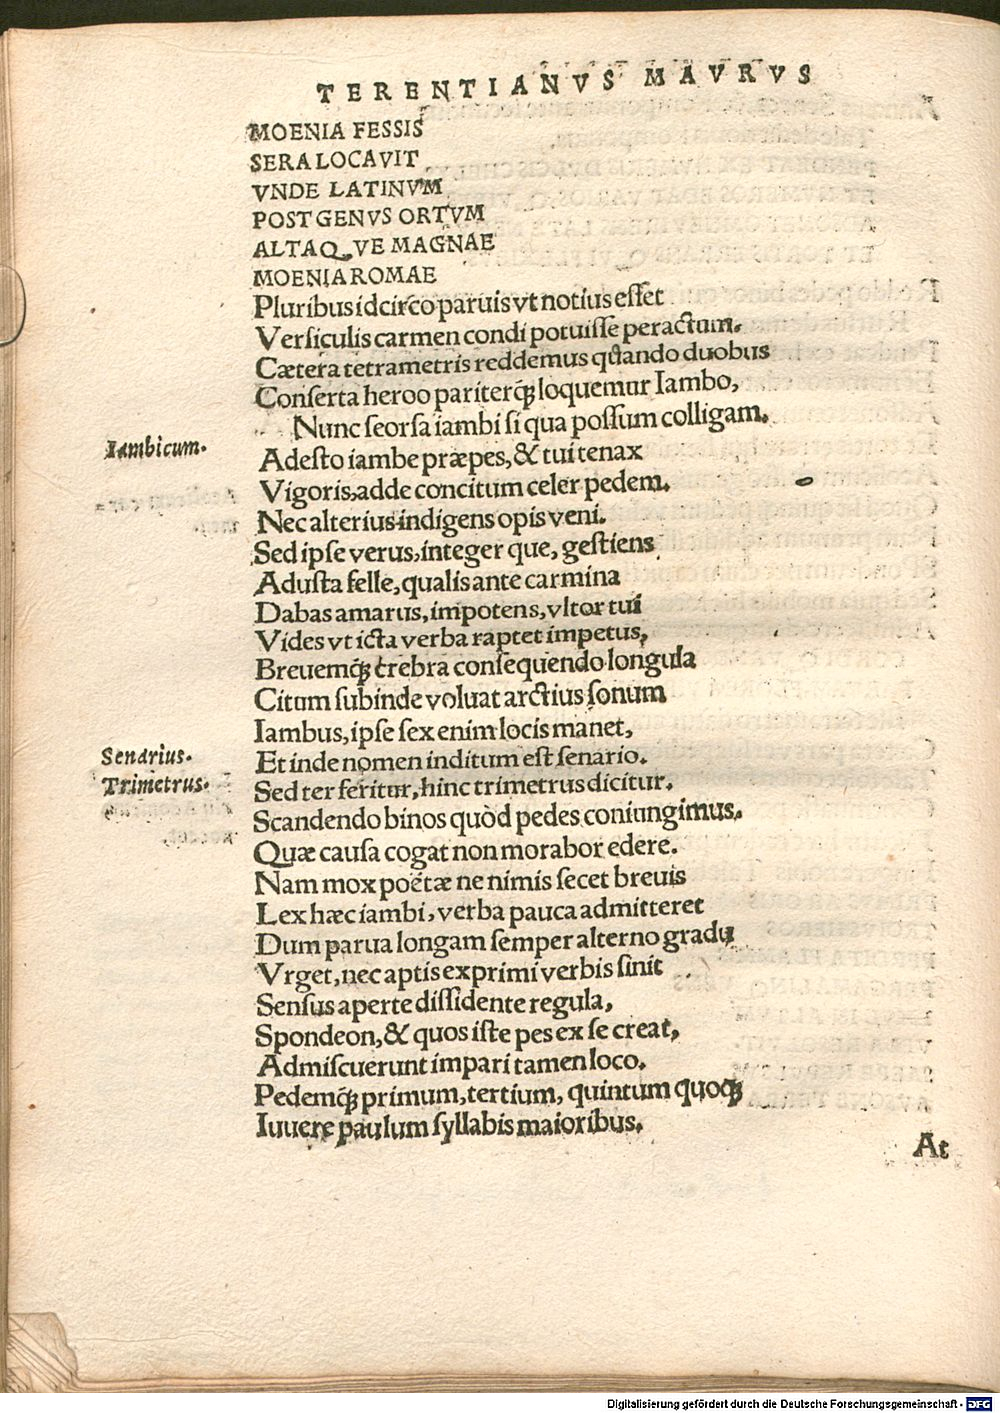 TERENTIANVS MAVRVS
MOENIA FESSIS
SERA LOCAVIT
VNDE LATINVM
POST GENVS ORTVM
ALTAQ VE MAGNAE
MOENIA ROMAE
Pluribus idcirco paruis vt notius esset
Versiculis carmen condi potuisse peractum.
Cætera tetrametris reddemus quando duobus
Conserta heroo pariterq́; loquemur Iambo,
Nunc seorsa iambi si qua possum colligam.
Iambicum.
Adesto iambe præpes, & tui tenax
Vigoris, adde concitum celer pedem.
Nec alterius indigens opis veni.
Sed ipse verus, integer que, gestiens
Adusta felle, qualis ante carmina
Dabas amarus, impotens, vltor tui
Vides vt icta verba raptet impetus,
Breuemq́; crebra consequendo longula
Citum subinde voluat arctius sonum
Iambus, ipse sex enim locis manet,
Sendrius.
Et inde nomen inditum est senario.
Trimetrus.
Sed ter feritur, hinc trimetrus dicitur.
Scandendo binos quòd pedes coniungimus.
Quæ causa cogat non morabor edere.
Nam mox poëtæ ne nimis secet breuis
Lex hæc iambi, verba pauca admitteret
Dum parua longam semper alterno gradu
Vrget, nec aptis exprimi verbis sinit
Sensus aperte dissidente regula,
Spondeon, & quos iste pes ex se creat,
Admiscuerunt impari tamen loco.
Pedemq́; primum, tertium, quintum quoq;
Iuuere paulum syllabis maioribus.
At
Digitalisierung gefördert durch die Deutsche Forschungsgemeinschaft - DFG